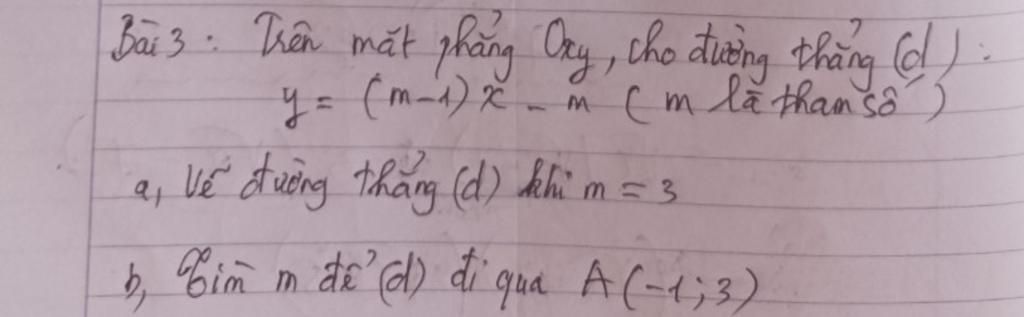 Bài 3 : Trên mặt phẳng Oxy, cho đường thẳng (d) :
y = (m-1) x - m ( m là tham số )
a, Vẽ đường thẳng (d) khi m = 3
b, Tìm m để (d) đi qua A(-1; 3)